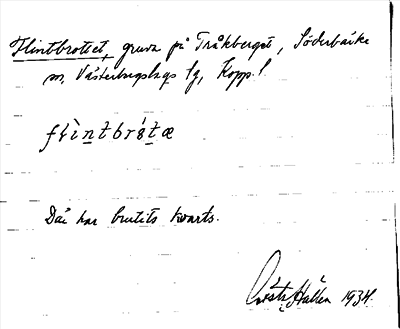 Flintbrottet, gruva på Tråkberget, Söderbärke
sn, Västerbergslags fg, Kopp. l.
flìntbrótæ
Där har brutits kvarts.
Gösta Hallén 1934.